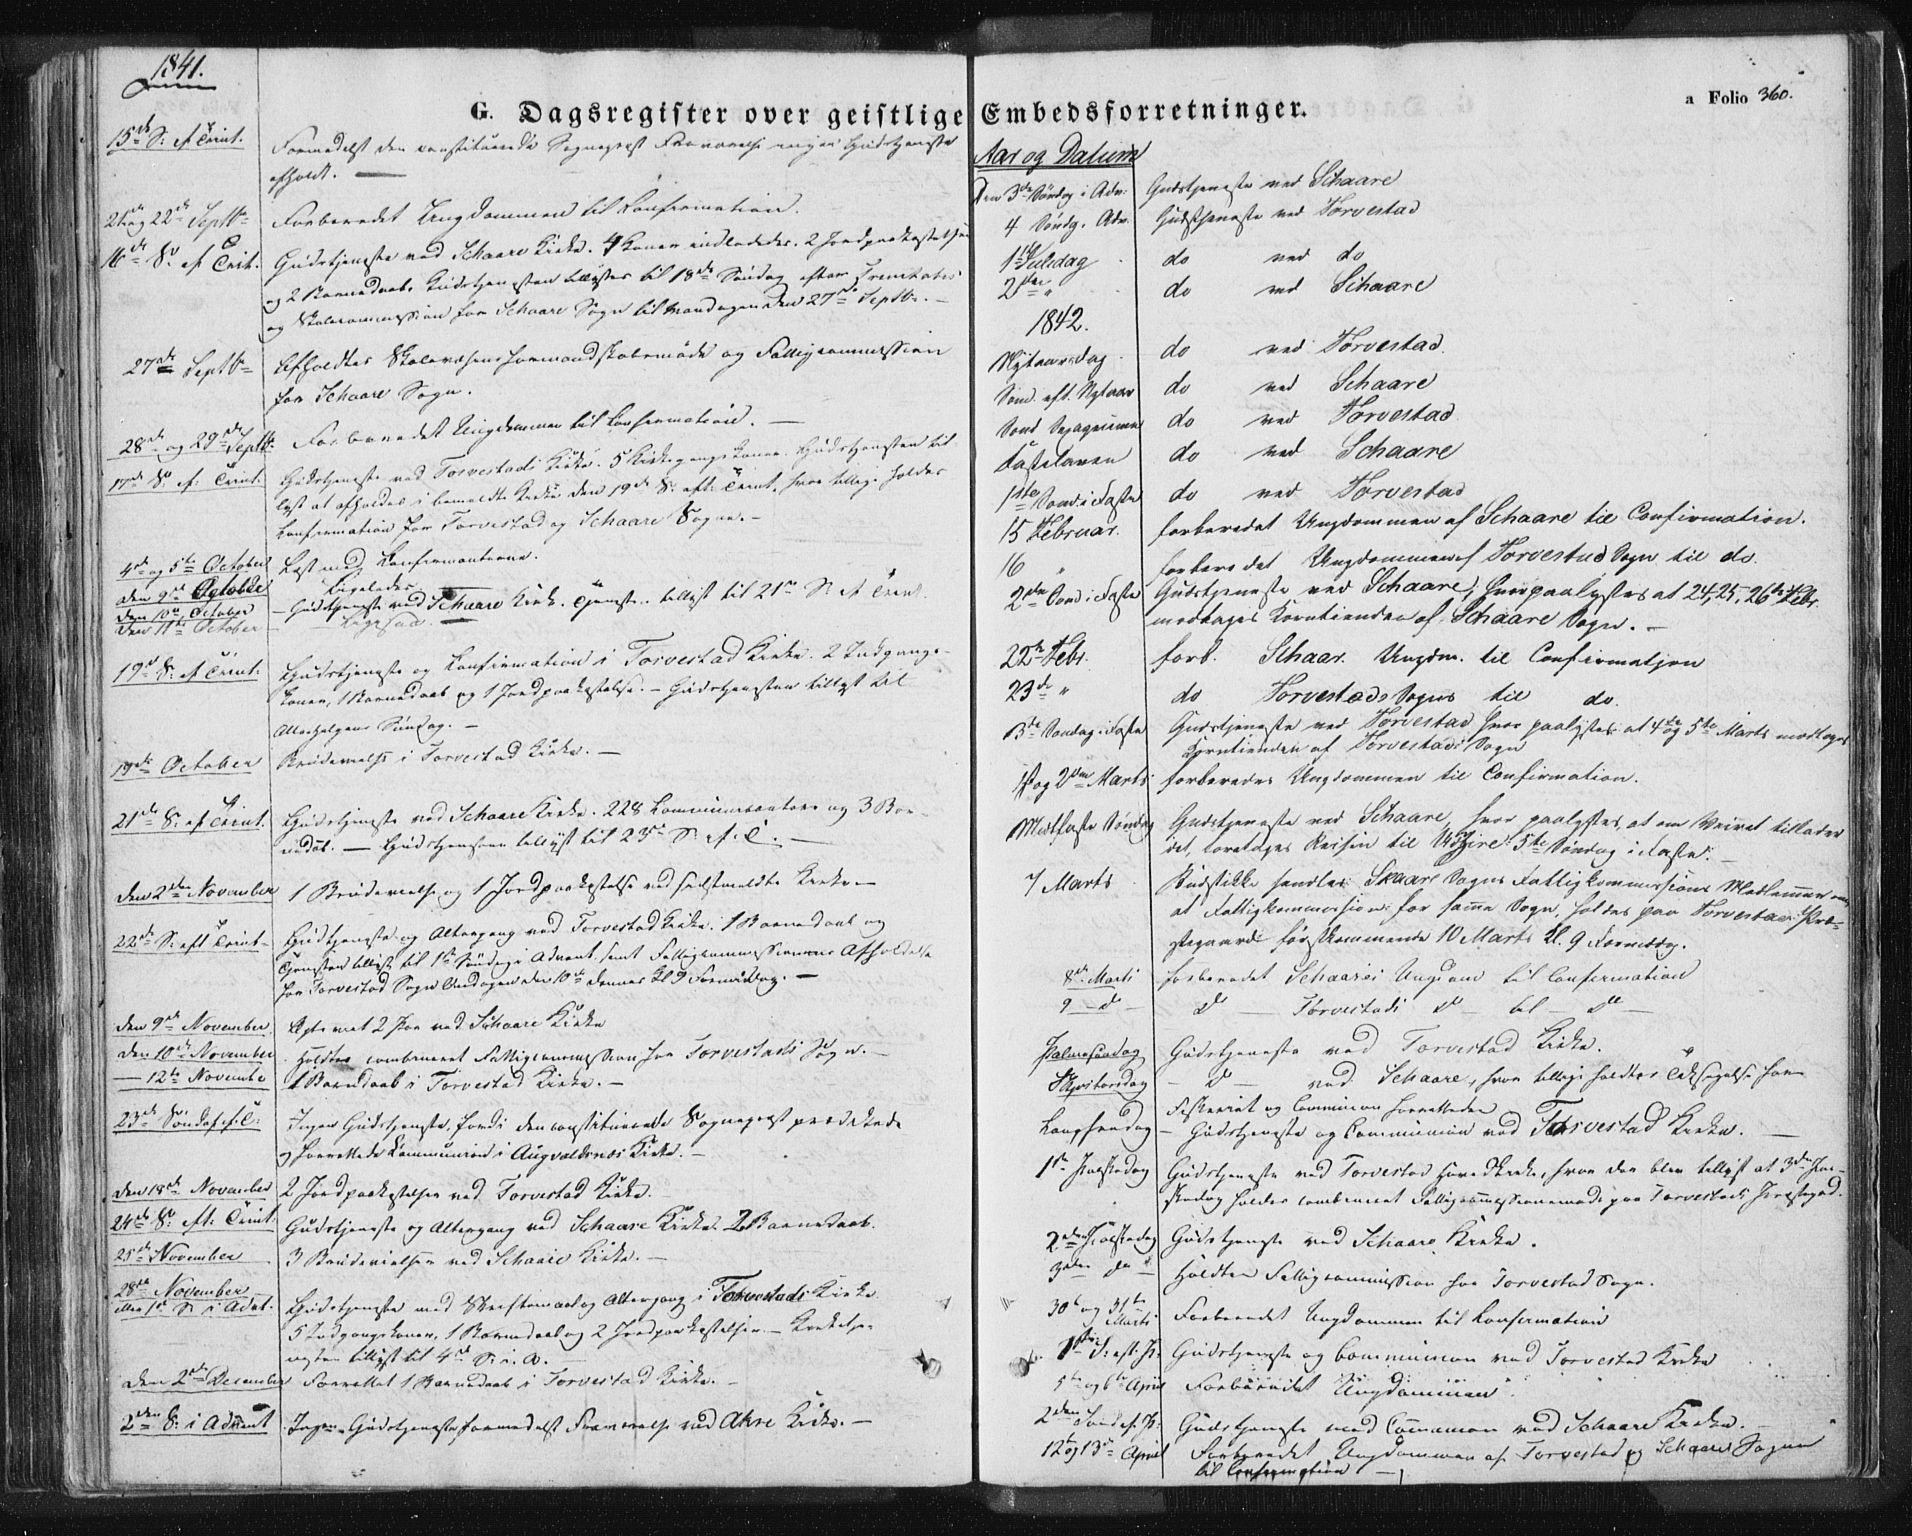 1841.
G. Dagsregister over geistlige Embedsforretninger.
a Folio 360.
15de S: ef Trint. Formedelst den constituerede Sognepræst Fraværelse ingen Gudstjeneste
afholdt. —
21de og 22de Septb. Forberedet Ungdommen til Confirmation.
16de S. ef Trit. Gudstjeneste ved Schaare Kirke. 4 Koner indlededes. 2 Jordpaakastelser
og 2 Barnedaab. Gudstjenesten tillystes til 18de Søndag efter Trinitatis
og Skolecommission for Schaare Sogn til Mandagen den 27de Septbr. —
27de Septb. Afholdtes Skolevæsens Formandskabsmøde og Fattigcommission
for Schaare Sogn.
28de og 29de Septb. Forberedet Ungdommen til Confirmation. —
17de S. ef: Trint. Gudstjeneste ved Torvestads Kirke. 5 Kirkegangskoner. Gudstjenesten til-
lyst at afholdes i bemeldte Kirke den 19de S: eft: Trint, hvor tillige holdes
Confirmation for Torvestad og Schaare Sogne. —
4de og 5te October Læst med Confirmanterne.
den 9de October Ligeledes
den 10de October — Gudtjeneste ved Schaare Kirk. Tjeneste tillyst til 21de S: ef Trin.
den 11te October Ligesaa. —
19de S: ef Trint: Gudstjeneste og Confirmation i Torvestad Kirke. 2 Indgangs-
koner, 1 Barnedaab og 1 Jordpaakastelse. — Gudstjenesten tillyst til
Allehelgens Søndag. —
19de October Brudevielse i Torvestad Kirke. —
21de S: ef Trint. Gudstjeneste ved Schaare Kirke. 228 Communicantere og 3 Bar-
nedåb. — Gudstjenesten tillyst til 23de S: ef: T. —
den 2den November 1 Brudevielse og 1 Jordpaakastelse ved sidstmeldte Kirke —
22de S: eft Trint — Gudtjeneste og Altergang ved Torvestad Kirke. 1 Barnedaab og
Tjenesten tillyst til 1ste Søndag i Advent, samt Fattigcommissionens Afholdelse
for Torvestad Sogn Onsdagen den 10de dennes Kl 9 Formiddag. —
den 9de November Ægteviet 2 Par ved Schaare Kirke
den 10de November Holdtes combineret Fattigcommission for Torvestads Sogn. —
— 12te Novembe 1 Barnedaab i Torvestad Kirke. —
23de Sønd ef T: Ingen Gudstjeneste, fordi den constituerede Sognepræst prædikede
og forrettede Communion i Augvaldsnæs Kirke. —
den 18de November 2 Jordpaakastelser ved Torvestad Kirke. —
24de S: ft: Trint: Gudstjeneste og Altergang ved Schaare Kirke. 2 Barnedaab.
25de November 3 Brudevielser ved Schaare Kirke. —
28de November Gudstjeneste med Skriftemaal og Altergang i Torvestads Kirke
eller 1ste S: i Advt. 5 Indgangskoner, 1 Barnedaab og 2 Jordpaakastelser. — Kirketje-
nesten tillyst til 4de S: i. A. —
den 2den December Forrettet 1 Barnedaab i Torvestad Kirke. —
2den S: i Advent Ingen Gudstjeneste, formedelst Fraværelse ved Akre Kirke. —
Aar og Datum
Den 3de Søndag i Adv: Gudstjeneste ved Schaare
4 Søndg. Adv. Gudstjeneste ved Torvestad
1ste Juledag do ved do
2den " do ved Schaare
1842.
Nytaarsdag do ved Torvestad
Sønd. eft. Nytaar do ved Schaare
Sønd Sexagesima do ved Torvestad
Fastelaven do ved Schaare
1ste Sønd. i Faste do ved Torvestad
15 Februar. forberedet Ungdommen af Schaare til Confirmation.
16 " forberedet Ungdommen af Torvestad Sogn til do.
2den Sønd. i Faste Gudstjeneste ved Schaare, hvor paalystes at 24, 25, 26de Febr.
modtages Korntienden af Schaare Sogn. —
22de Febr. forb. Schaar. Ungdm. til Confirmatjon
23de " do Torvestads Sogns til do.
3de Søndag i Faste Gudstjeneste ved Torvestad hvor paalystes at 4de og 5te Marts modtages
Korntienden af Torvestads Sogn
1ste og 2den Marts forberedes Ungdommen til Confirmation.
Midfaste Søndag Gudstjeneste ved Schaare, hvor paalystes, at om Veiret tillader
det, foretages Reisen til Udzire 5te Søndag i Faste. —
7 Marts Budstikke sendtes Skaare Sogns Fattigkommissions Medlemmer om,
at Fattigkommission for samme Sogn, holdes paa Torvestad Præ-
stegaard førstkommende 10 Marts Kl. 9 Formiddg.
8de Marts forberedet Schaares Ungdom til Confirmation
9 — d— D — Torvestads D — til — D —
Palmesøndag Gudstjeneste ved Torvestad Kirke.
Skjærtorsdag — D — ved Schaare, hvor tillige holdtes Taksigelse for
Fiskeriet og Communion forrettedes
Langfredag — Gudstjeneste og Communion ved Torvestad Kirke. —
1ste Paaskedag Gudstjeneste ved Torvestad Hovedkirke, hvor der blev tillyst at 3die Paa-
skedag holdes combineret Fattigcommissionsmøde paa Torvestads Præstegrd.
2den Paaskedag Gudstjeneste ved Schaare Kirke.
3die do " Holdtes Fattigcommission for Torvestad Sogn.
30te og 31te Marts Forberedet Ungdommen til Confirmation
1ste S: eft. P. Gudstjeneste og Communion ved Torvestad Kirke
5te og 6te April Forberedet Ungdommen.
2den Sønd ef. P: Gudstjeneste med Communion ved Schaare Kirke. —
12te og 13de April Forberedet Ungdommen af Torvestad og Schaare Sogne
til Confirmation —